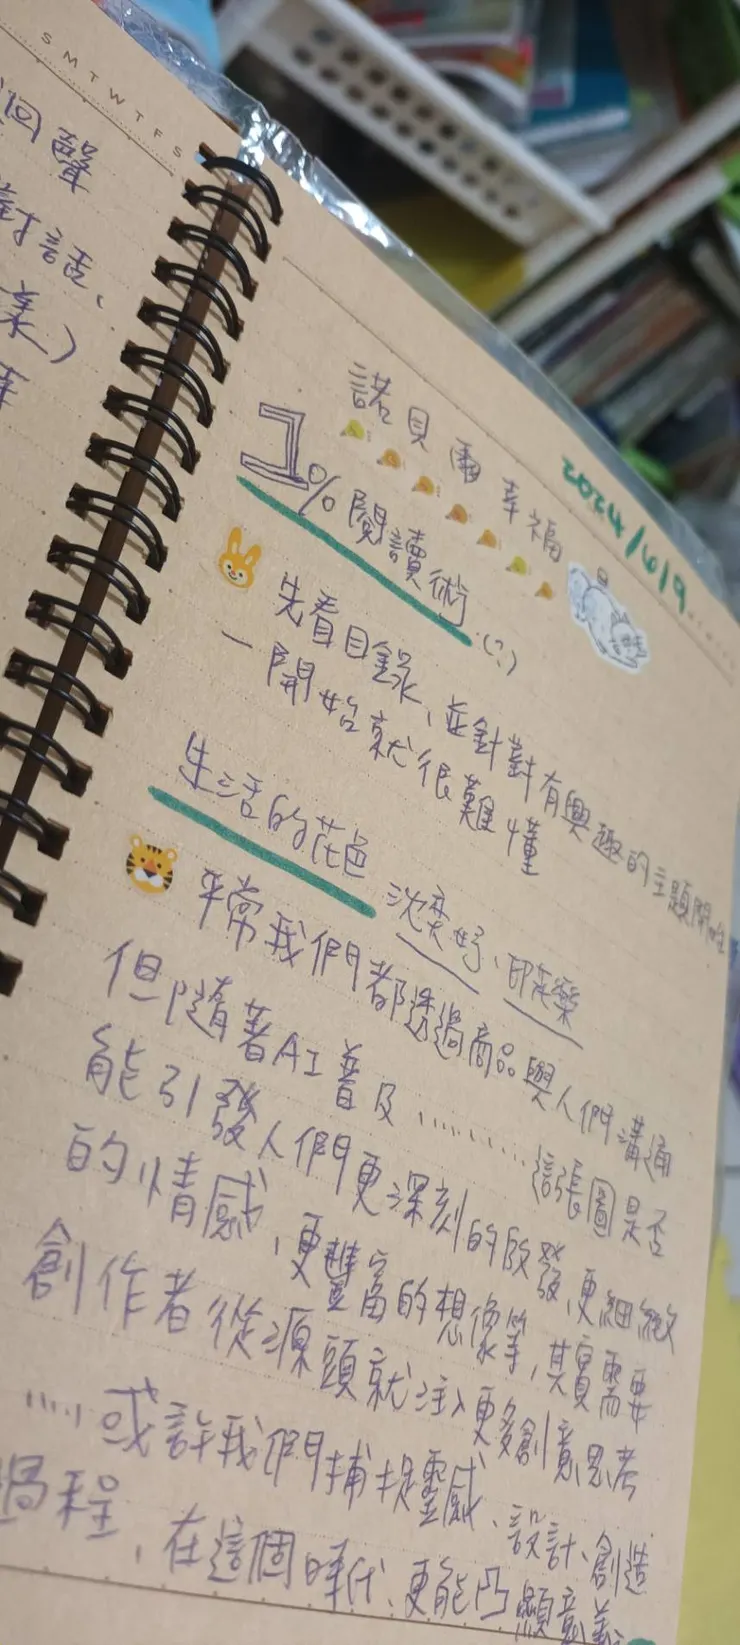 S M T W T F S
回聲
對話、
諾貝爾幸福
2024/6/9
1%閱讀術(?)
先看目錄、並針對有興趣的主題開始
一開始就很難懂
生活的花色 沈奕妤、印花樂
平常我們都透過商品與人們溝通
但隨著AI普及………這張圖是否
能引發人們更深刻的啟發、更細緻
的情感、更豐富的想像等,其實需要
創作者從源頭就注入更多創意思考
……或許我們捕捉靈感、設計、創造
過程、在這個時代、更能凸顯意義